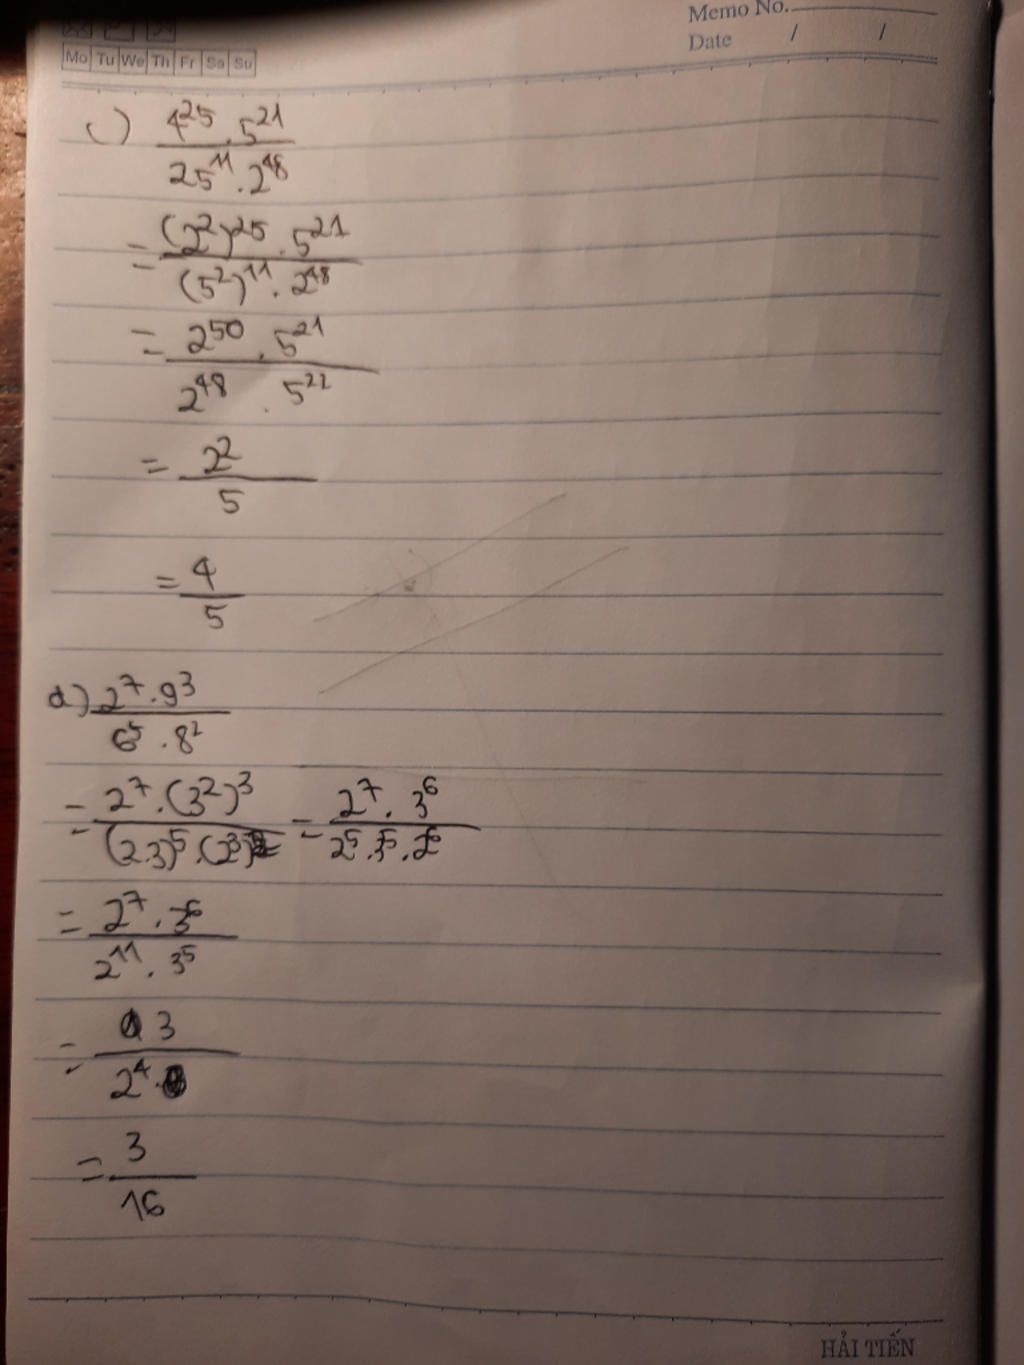 Memo No.
Date / /
Mo Tu We Th Fr Sa Su
c) 4^25 . 5^21 / 25^11 . 2^48
= (2^2)^25 . 5^21 / (5^2)^11 . 2^48
= 2^50 . 5^21 / 2^48 . 5^22
= 2^2 / 5
= 4 / 5
d) 2^7 . 9^3 / 6^5 . 8^2
= 2^7 . (3^2)^3 / (2.3)^5 . (2^3)^2 = 2^7 . 3^6 / 2^5 . 3^5 . 2^6
= 2^7 . 3^6 / 2^11 . 3^5
= 3 / 2^4
= 3 / 16
HẢI TIẾN